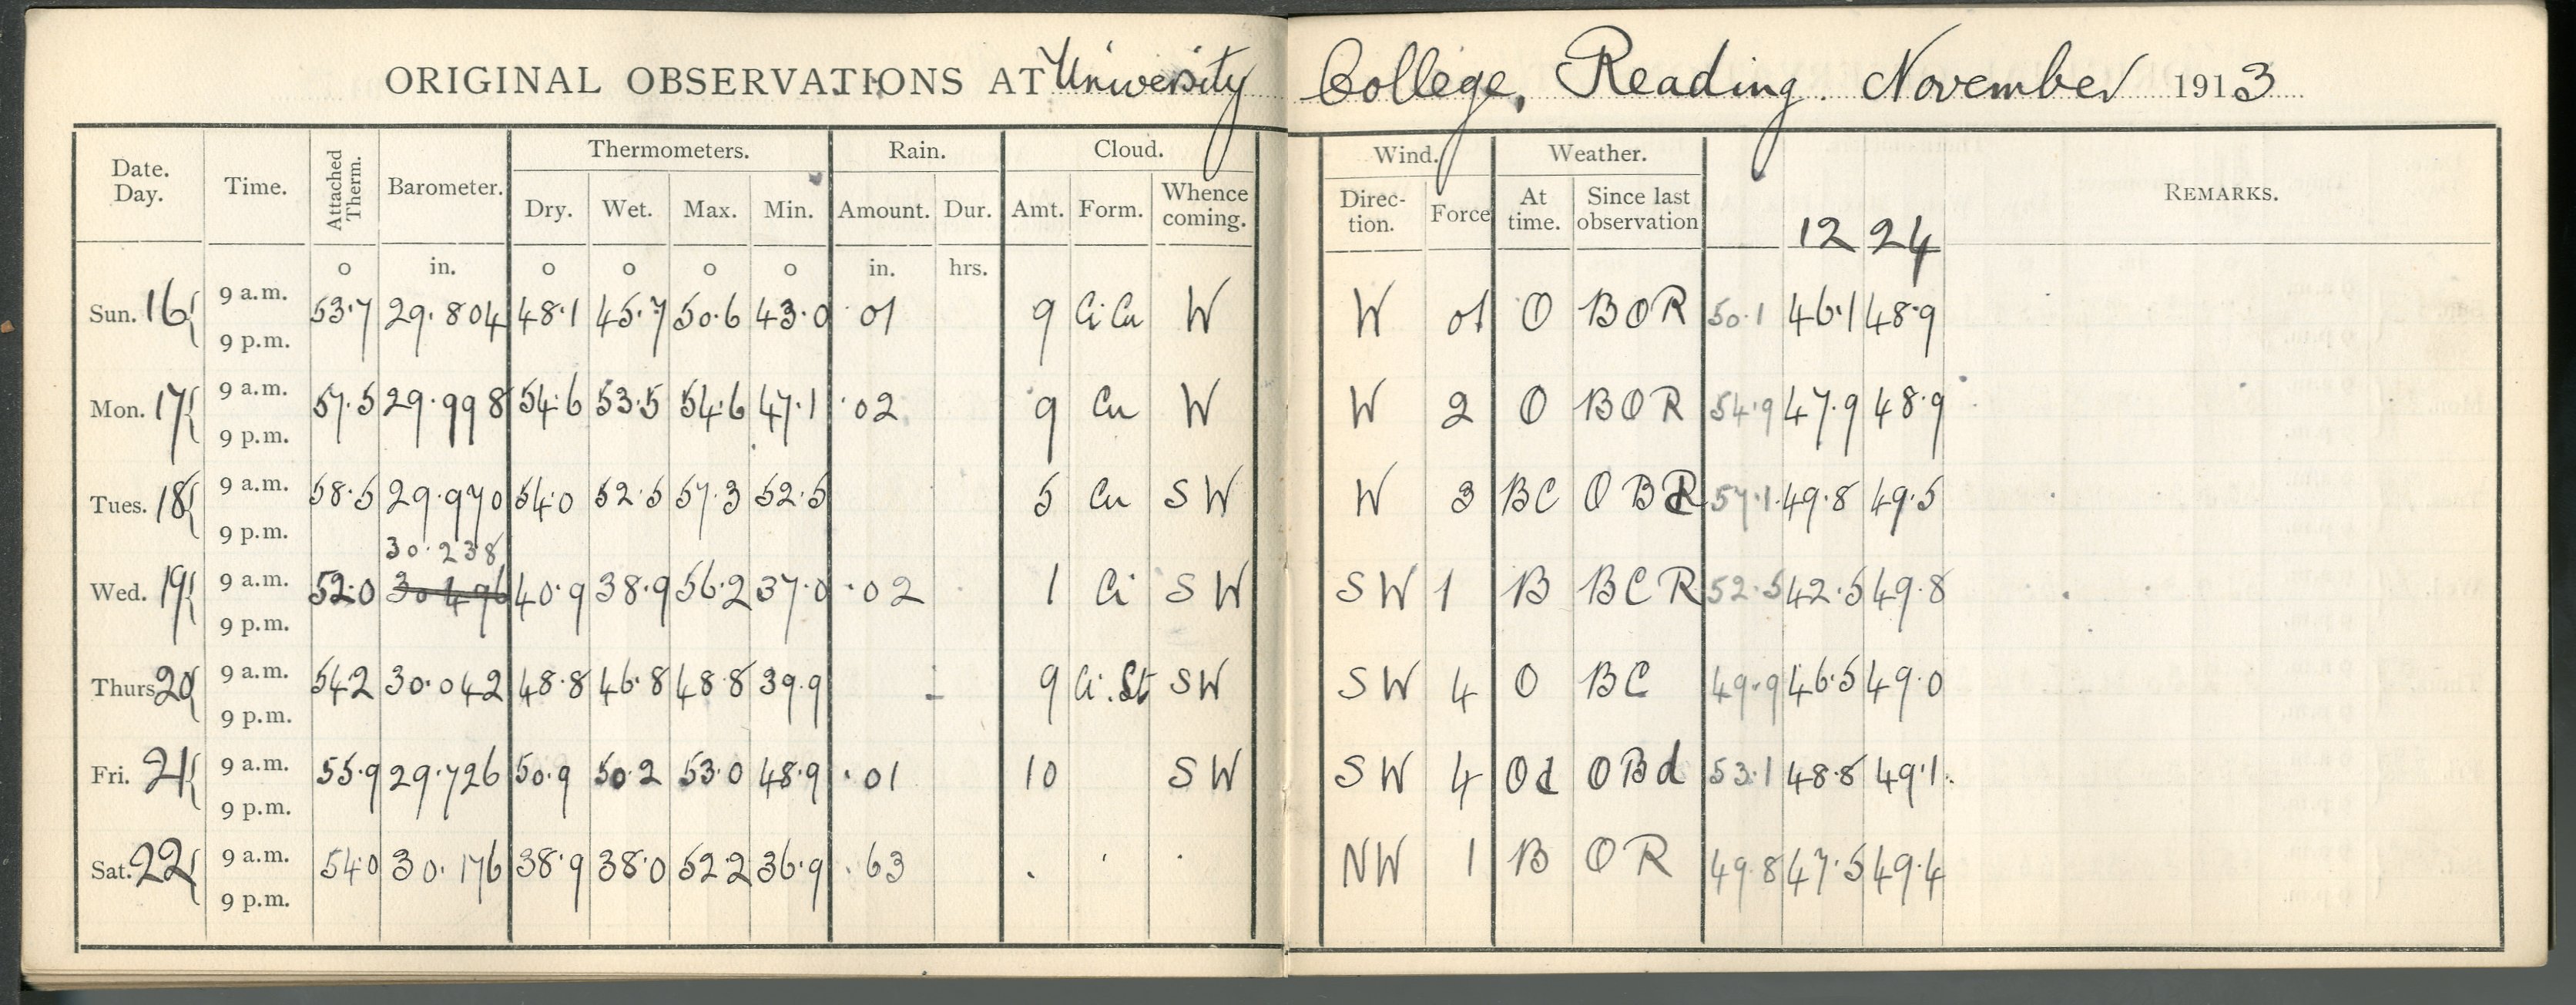 ORIGINAL OBSERVATIONS AT University College, Reading. November 1913
Date. Day. Time. Attached Therm. Barometer. Thermometers. Rain. Cloud. Wind. Weather. REMARKS.
Dry. Wet. Max. Min. Amount. Dur. Amt. Form. Whence coming. Direc- tion. Force At time. Since last observation 12 24
o in. o o o o in. hrs.
Sun. 16 9 a.m. 53.7 29.804 48.1 45.7 50.6 43.0 .01 9 Ci Cu W W 01 O B O R 50.1 46.1 48.9
9 p.m.
Mon. 17 9 a.m. 57.5 29.998 54.6 53.5 54.6 47.1 .02 9 Cu W W 2 O B O R 54.9 47.9 48.9
9 p.m.
Tues. 18 9 a.m. 58.5 29.970 54.0 52.5 57.3 52.5 5 Cu S W W 3 BC O B R 57.1 49.8 49.5
9 p.m.
30.238
Wed. 19 9 a.m. 52.0 30.496 40.9 38.9 56.2 37.0 .02 1 Ci S W S W 1 B B C R 52.5 42.5 49.8
9 p.m.
Thurs 20 9 a.m. 54.2 30.042 48.8 46.8 48.8 39.9 9 Ci.St SW S W 4 O B C 49.9 46.5 49.0
9 p.m.
Fri. 21 9 a.m. 55.9 29.726 50.9 50.2 53.0 48.9 .01 10 S W S W 4 O d O B d 53.1 48.8 49.1
9 p.m.
Sat. 22 9 a.m. 54.0 30.176 38.9 38.0 52.2 36.9 .63 NW 1 B O R 49.8 47.5 49.4
9 p.m.